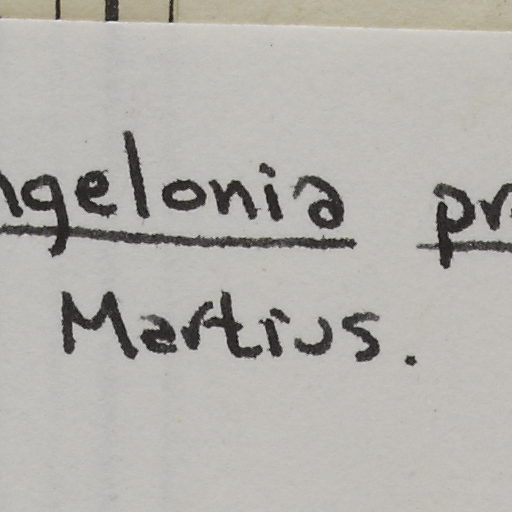 ngelonia pr
Martius.